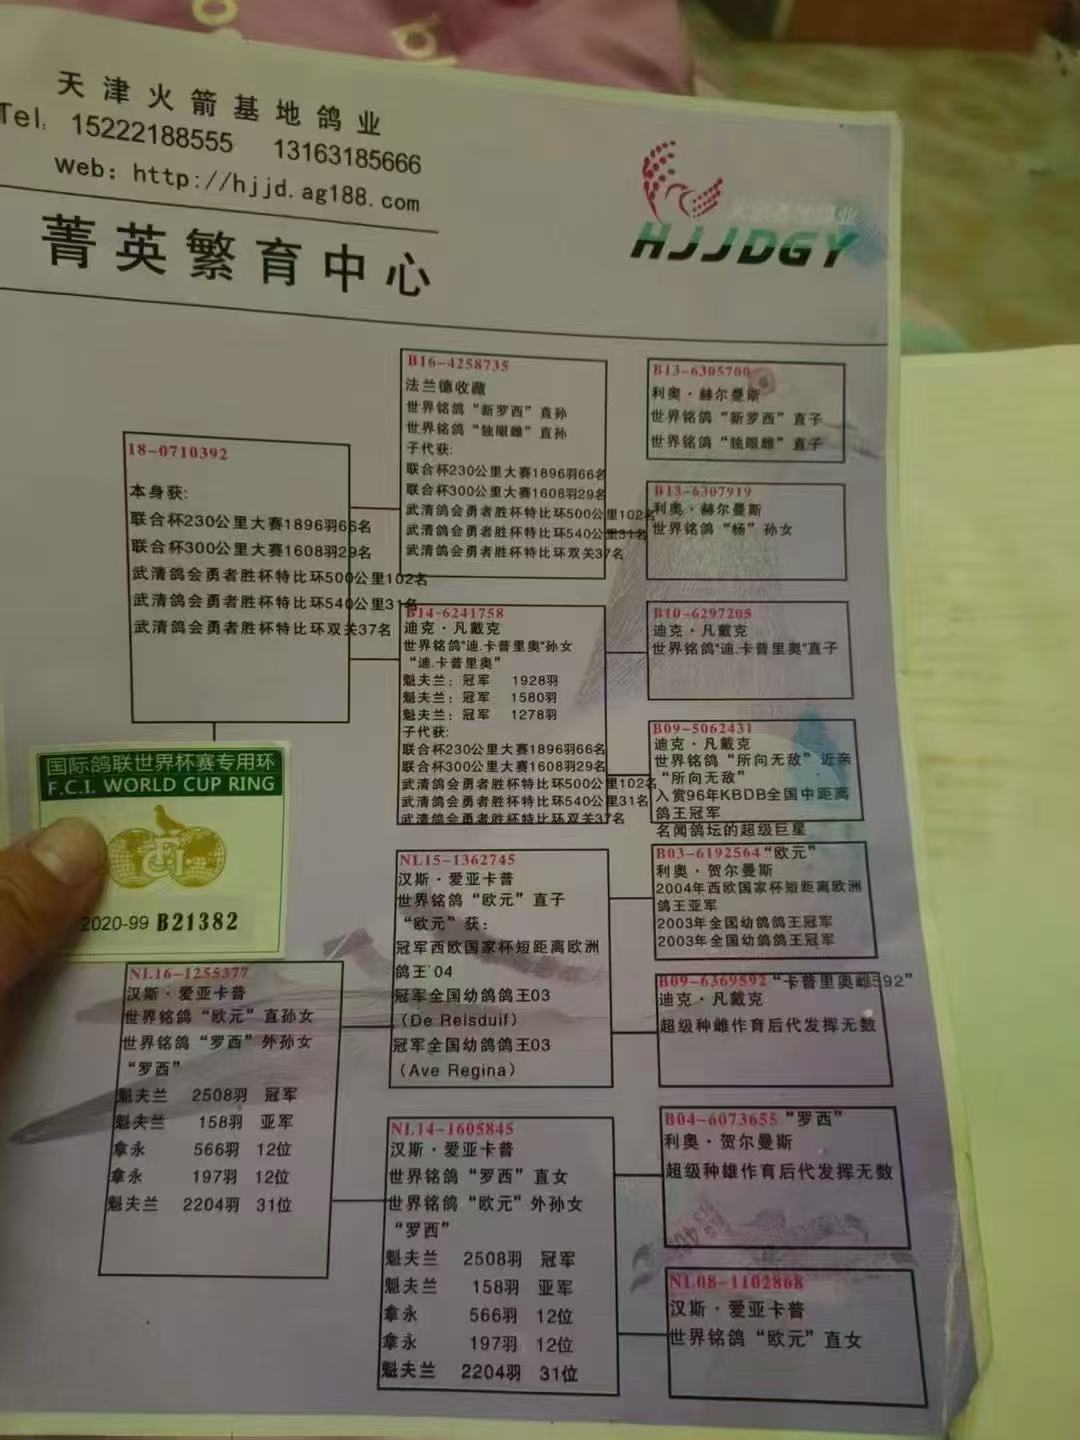 天津火箭基地鸽业
Tel: 15222188555 13163185666
Web: http://hjjd.ag188.com
菁英繁育中心
HJJDGY
18-0710392
本身获:
联合杯230公里大赛1896羽66名
联合杯300公里大赛1608羽29名
武清鸽会勇者胜杯特比环500公里102名
武清鸽会勇者胜杯特比环540公里31名
武清鸽会勇者胜杯特比环双关37名
B16-4258735
法兰德收藏
世界铭鸽“新罗西”直孙
世界铭鸽“独眼雌”直孙
子代获:
联合杯230公里大赛1896羽66名
联合杯300公里大赛1608羽29名
武清鸽会勇者胜杯特比环500公里102名
武清鸽会勇者胜杯特比环540公里31名
武清鸽会勇者胜杯特比环双关37名
B13-6305700
利奥·赫尔曼斯
世界铭鸽“新罗西”直子
世界铭鸽“独眼雌”直子
B13-6307919
利奥·赫尔曼斯
世界铭鸽“杨”孙女
B14-6241758
迪克·凡戴克
世界铭鸽"迪.卡普里奥"孙女
“迪.卡普里奥”
魁夫兰: 冠军 1928羽
魁夫兰: 冠军 1580羽
魁夫兰: 冠军 1278羽
子代获:
联合杯230公里大赛1896羽66名
联合杯300公里大赛1608羽29名
武清鸽会勇者胜杯特比环500公里102名
武清鸽会勇者胜杯特比环540公里31名
武清鸽会勇者胜杯特比环双关37名
B10-6297205
迪克·凡戴克
世界铭鸽"迪.卡普里奥"直子
B09-5062431
迪克·凡戴克
世界铭鸽“所向无敌”近亲
“所向无敌”
入赏96年KBDB全国中距离
鸽王冠军
名闻鸽坛的超级巨星
国际鸽联世界杯赛专用环
F.C.I. WORLD CUP RING
F.C.I.
2020-99 B21382
NL16-1255377
汉斯·爱亚卡普
世界铭鸽“欧元”直孙女
世界铭鸽“罗西”外孙女
“罗西”
魁夫兰 2508羽 冠军
魁夫兰 158羽 亚军
拿永 566羽 12位
拿永 197羽 12位
魁夫兰 2204羽 31位
NL15-1362745
汉斯·爱亚卡普
世界铭鸽“欧元”直子
“欧元”获:
冠军西欧国家杯短距离欧洲
鸽王'04
冠军全国幼鸽鸽王03
（De Reisduif）
冠军全国幼鸽鸽王03
（Ave Regina）
B03-6192564“欧元”
利奥·贺尔曼斯
2004年西欧国家杯短距离欧洲
鸽王亚军
2003年全国幼鸽鸽王冠军
2003年全国幼鸽鸽王冠军
B09-6369592“卡普里奥雌592”
迪克·凡戴克
超级种雌作育后代发挥无数
NL14-1605845
汉斯·爱亚卡普
世界铭鸽“罗西”直女
世界铭鸽“欧元”外孙女
“罗西”
魁夫兰 2508羽 冠军
魁夫兰 158羽 亚军
拿永 566羽 12位
拿永 197羽 12位
魁夫兰 2204羽 31位
B04-6073655“罗西”
利奥·贺尔曼斯
超级种雄作育后代发挥无数
NL08-1102868
汉斯·爱亚卡普
世界铭鸽“欧元”直女